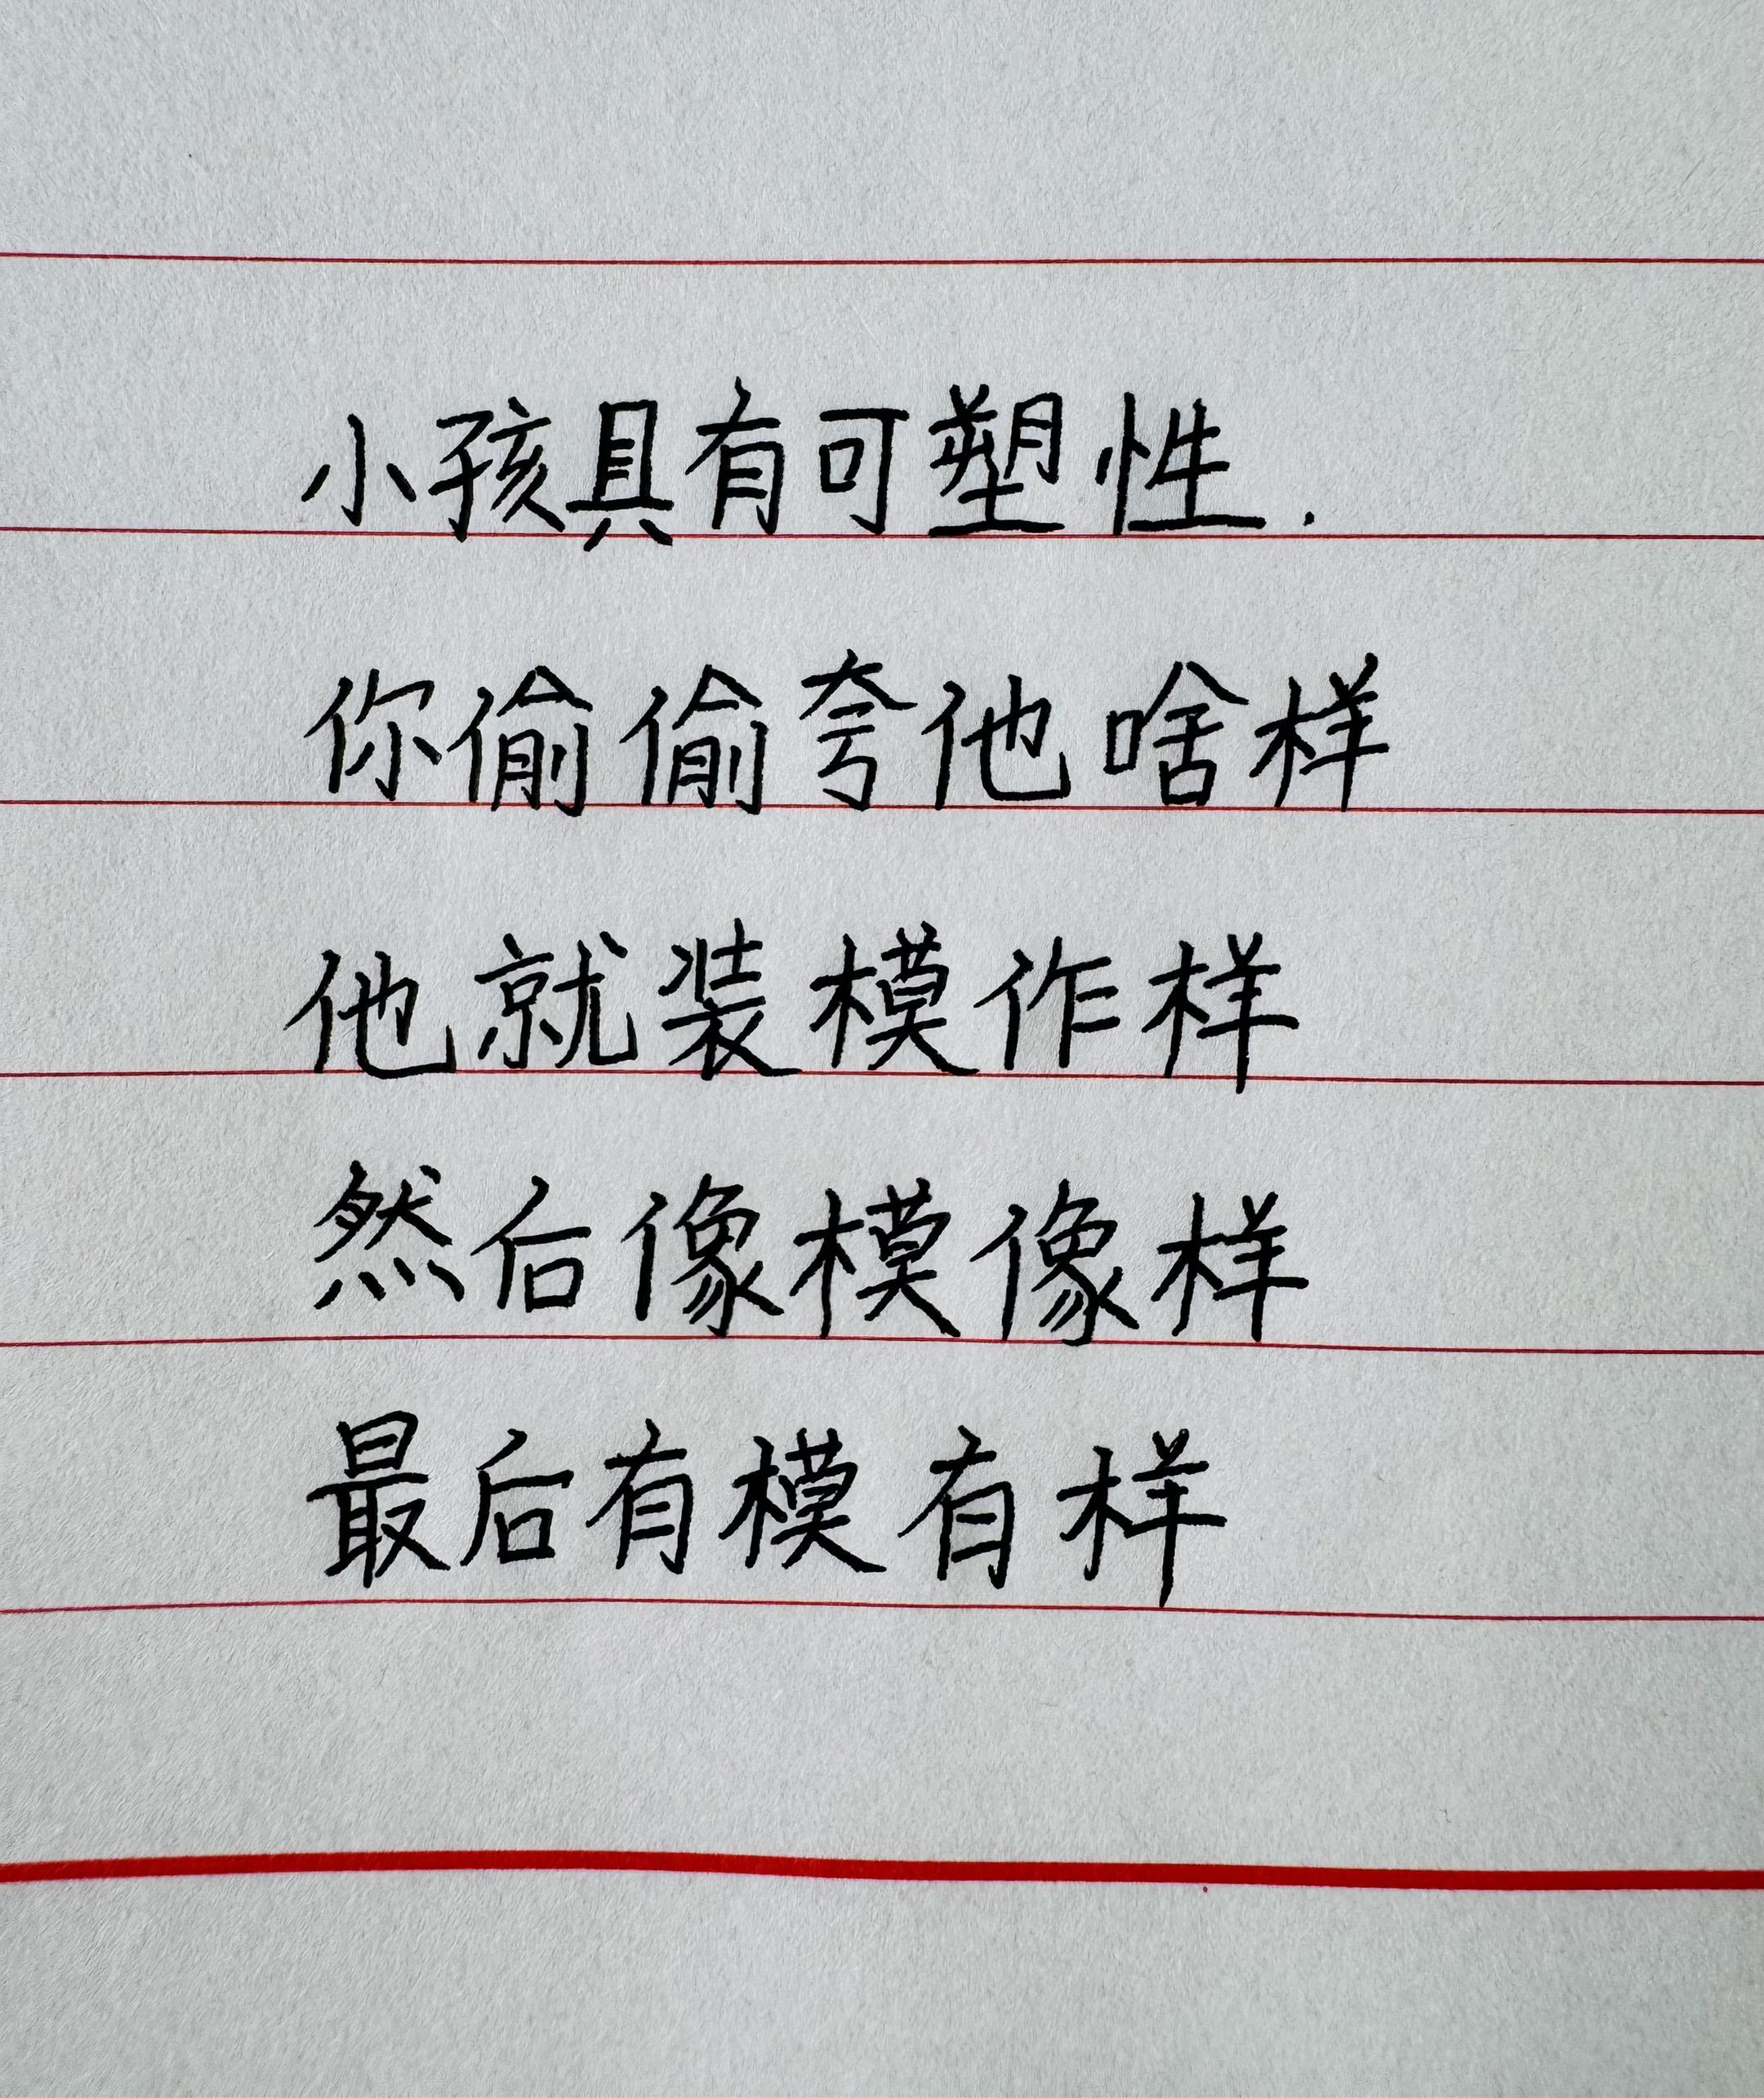 小孩具有可塑性.
你偷偷夸他啥样
他就装模作样
然后像模像样
最后有模有样